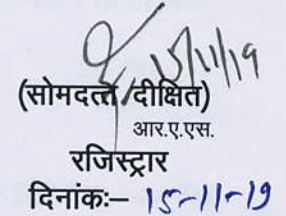 15/11/19
(सोमदत्त दीक्षित)
आर.ए.एस.
रजिस्ट्रार
दिनांकः– 15-11-19